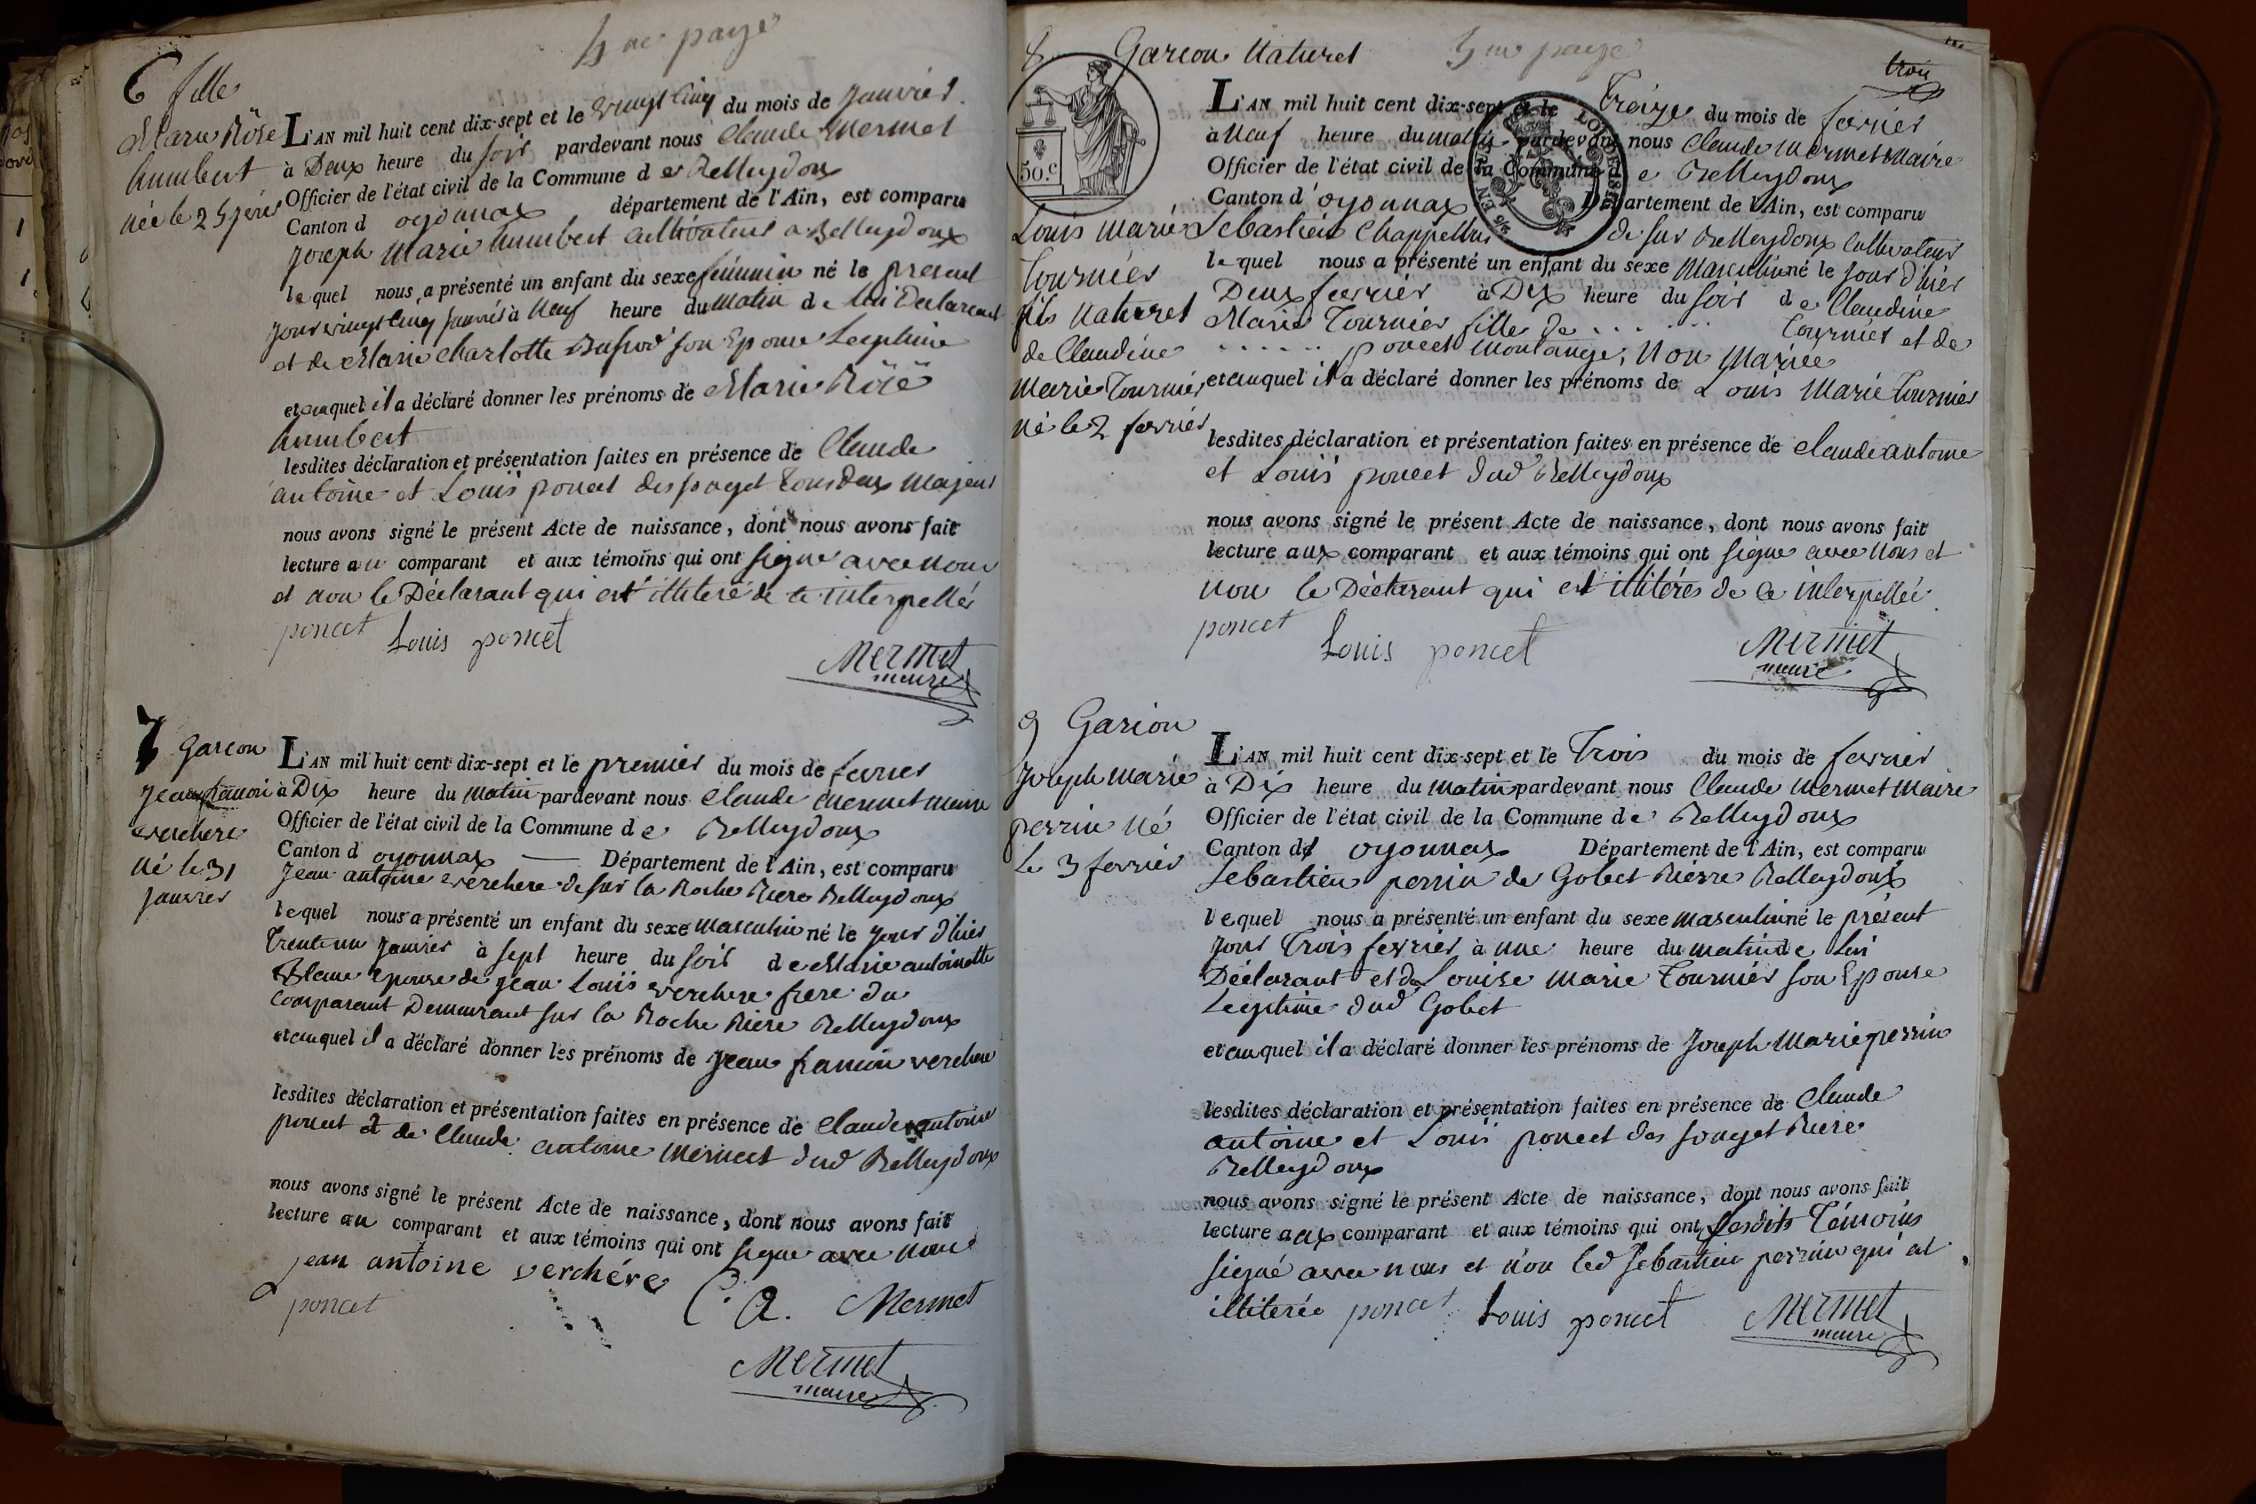 4me page
6 fille
Marie Rose
humbert
née le 25 janvier
L'AN mil huit cent dix-sept et le vingt cinq du mois de janvier
à Deux heure du soir pardevant nous Claude Mermet
Officier de l'état civil de la Commune de Belleydoux
Canton d oyonnax département de l'Ain, est comparu
joseph Marie humbert cultivateur a Belleydoux
lequel nous a présenté un enfant du sexe féminin né le présent
jour vingt cinq janvier à Neuf heure du matin de lui Déclarant
et de Marie Charlotte son Epouse Legitime
et auquel il a déclaré donner les prénoms de Marie Rose
humbert
lesdites déclaration et présentation faites en présence de Claude
antoine et Louis poncet tous deux Majeur
nous avons signé le présent Acte de naissance, dont nous avons fait
lecture au comparant et aux témoins qui ont signé avec nous
et non le Déclarant qui est illiteré de ce interpellé
poncet Louis poncet
Mermet
maire
7 garcon
jean
verchere
né le 31
janvier
L'AN mil huit cent dix-sept et le premier du mois de fevrier
à Dix heure du matin pardevant nous Claude Mermet Maire
Officier de l'état civil de la Commune de Belleydoux
Canton d oyonnax Département de l'Ain, est comparu
jean antoine verchere de sur la Roche Riere Belleydoux
lequel nous a présenté un enfant du sexe masculin né le jour d'hier
trente un janvier à sept heure du soir de Marie antoinette
Blanc epouse de jean Louis verchere frere du
comparant Demeurant sur la Roche Riere Belleydoux
et auquel il a déclaré donner les prénoms de jean verchere
lesdites déclaration et présentation faites en présence de Claude antoine
poncet et de Claude antoine Mermet dud Belleydoux
nous avons signé le présent Acte de naissance, dont nous avons fait
lecture au comparant et aux témoins qui ont signé avec nous
jean antoine verchére C. A. Mermet
poncet
Mermet
maire
8 Garcon Naturel 5me page
trois
50.c
Louis Marie
Tournier
fils Naturel
de Claudine
Marie Tournier
né le 2 fevrier
L'AN mil huit cent dix-sept et le Troize du mois de fevrier
à Neuf heure du matin pardevant nous Claude Mermet Maire
Officier de l'état civil de la Commune de Belleydoux
Canton d'oyonnax Département de l'Ain, est comparu
Sebastien Chappellus de sur Belleydoux Cultivateur
lequel nous a présenté un enfant du sexe Masculin né le jour d'hier
Deux fevrier à Dix heure du soir de Claudine
Marie Tournier fille de . . . . . . Tournier et de
. . . . . . poncet Montange, Non Mariée
et auquel il a déclaré donner les prénoms de Louis Marie Tournier
lesdites déclaration et présentation faites en présence de Claude antoine
et Louis poncet dud Belleydoux
nous avons signé le présent Acte de naissance, dont nous avons fait
lecture aux comparant et aux témoins qui ont signé avec Nous et
non le Déclarant qui est illiteres de ce interpellé
poncet Louis poncet
Mermet
maire
9 Garcon
joseph Marie
perrin Né
Le 3 fevrier
L'AN mil huit cent dix-sept et le Trois du mois de fevrier
à Dix heure du matin pardevant nous Claude Mermet Maire
Officier de l'état civil de la Commune de Belleydoux
Canton d oyonnax Département de l'Ain, est comparu
Sebastien perrin de Gobet Rierre Belleydoux
lequel nous a présenté un enfant du sexe masculin né le présent
jour Trois fevrier à une heure du matin de lui
Déclarant et de Louise Marie Tournier son Epouse
Legitime dud Gobet
et auquel il a déclaré donner les prénoms de Joseph Marie perrin
lesdites déclaration et présentation faites en présence de Claude
antoine et Louis poncet Riere
Belleydoux
nous avons signé le présent Acte de naissance, dont nous avons fait
lecture aux comparant et aux témoins qui ont lesdits Témoins
signé avec nous et non led Sebastien perrin qui est
illiterée poncet Louis poncet Mermet
maire